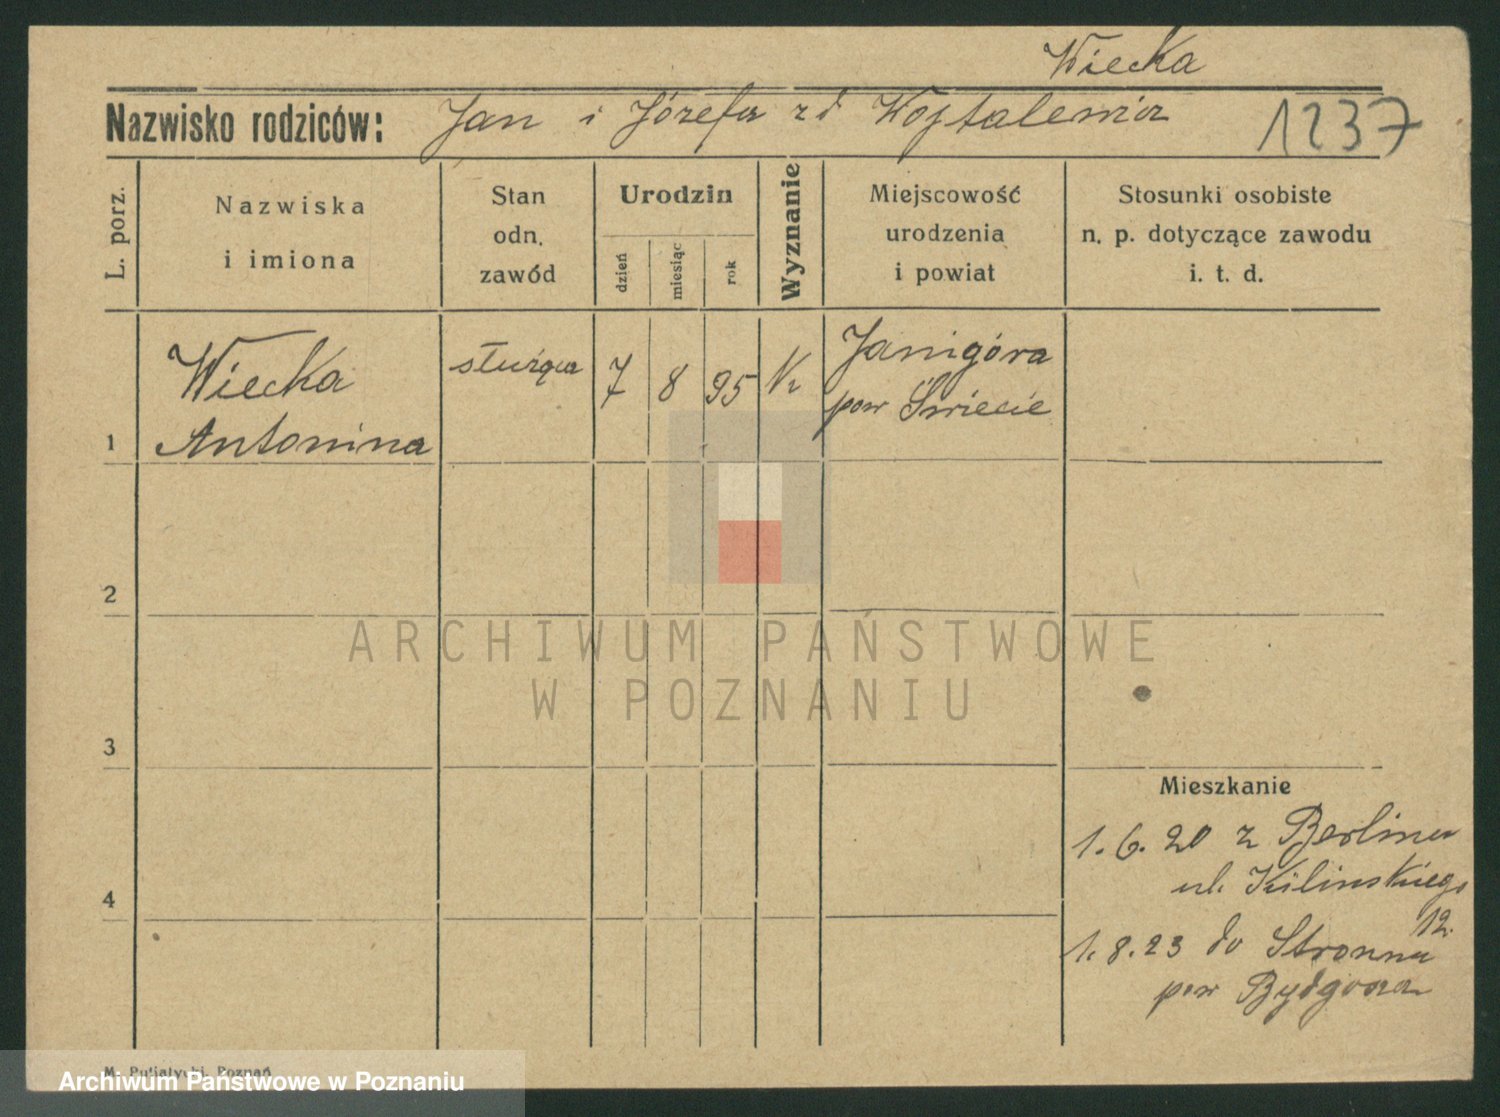 Wiecka
Nazwisko rodziców: Jan i Józefa zd 1237
L. porz.
Nazwiska
i imiona
Stan
odn.
zawód
Urodzin
dzień
miesiąc
rok
Wyznanie
Miejscowość
urodzenia
i powiat
Stosunki osobiste
n. p. dotyczące zawodu
i. t. d.
1
Wiecka
Antonina
służąca
7
8
95
Janigóra
pow Świecie
2
3
4
Mieszkanie
1.6.20 z Berlina
ul. Kilinskiego
12.
1.8.23 do Stronna
pow Bydgoszcz
ARCHIWUM PAŃSTWOWE
W POZNANIU
M. Putiatycki, Poznań
Archiwum Państwowe w Poznaniu